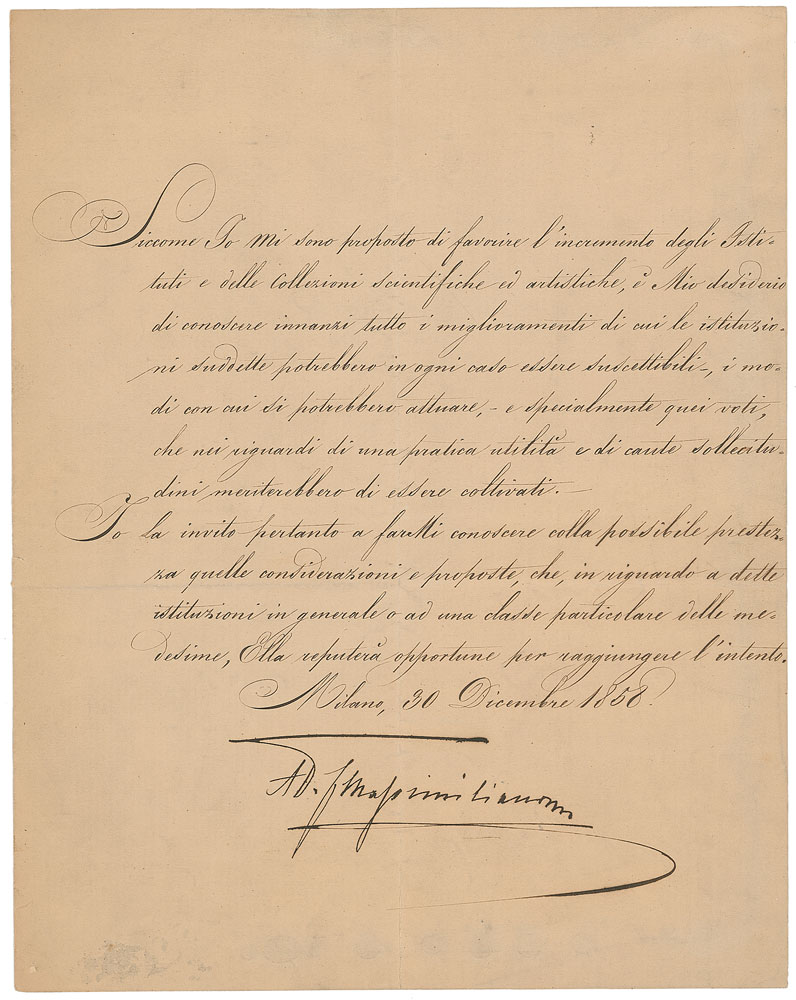 Siccome Io Mi sono proposto di favorire l'incremento degli Isti-
tuti e delle Collezioni scientifiche ed artistiche, è Mio desiderio
di conoscere innanzi tutto i miglioramenti di cui le istituzio-
ni suddette potrebbero in ogni caso essere suscettibili -, i mo-
di con cui si potrebbero attuare, - e specialmente quei voti,
che nei riguardi di una pratica utilità e di caute sollecitu-
dini meriterebbero di essere coltivati. -
Io La invito pertanto a farMi conoscere colla possibile prestez-
za quelle considerazioni e proposte, che, in riguardo a dette
istituzioni in generale o ad una classe particolare delle me-
desime, Ella reputerà opportune per raggiungere l'intento.
Milano, 30 Dicembre 1858.
AD. f Massimiliano